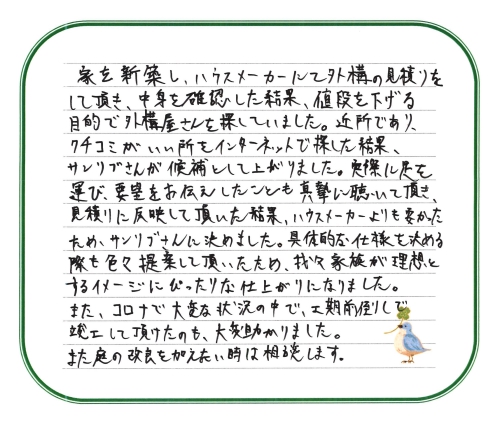 家を新築し、ハウスメーカーにて外構の見積りを
して頂き、中身を確認した結果、値段を下げる
目的で外構屋さんを探していました。近所であり、
クチコミがいい所をインターネットで探した結果、
サンリブさんが候補として上がりました。実際に足を
運び、要望をお伝えしたことも真摯に聴いて頂き、
見積りに反映して頂いた結果、ハウスメーカーよりも安かった
ため、サンリブさんに決めました。具体的な仕様を決める
際も色々提案して頂いたため、我々家族が理想と
するイメージにぴったりな仕上がりになりました。
また、コロナで大変な状況の中で、工期前倒しで
竣工して頂けたのも、大変助かりました。
また庭の改良を加えたい時は相談します。